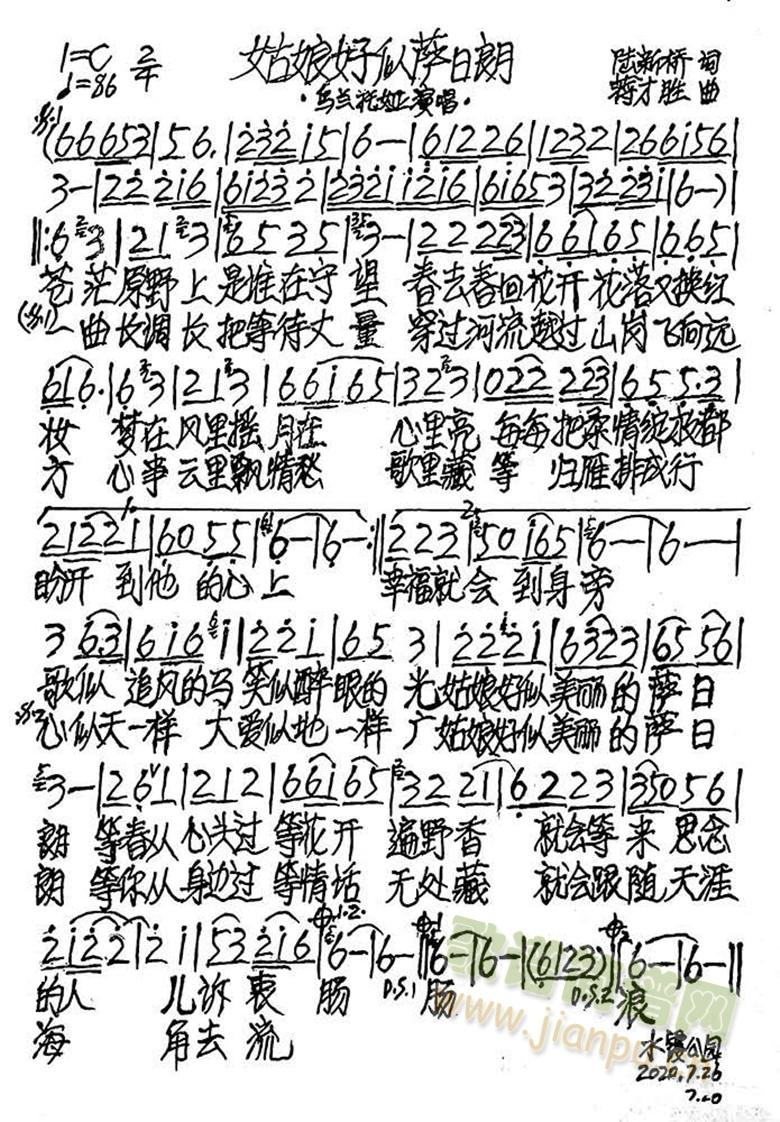 1=C 2/4 姑娘好似萨日朗 陆新桥 词
♩=86 ·乌兰托娅演唱· 蒋才胜 曲
(66653|56.|23215|6-|61226|1232|266156|
3-|222216|61232|2321 1216|61653|322231|6-)|
‖:63|213|6535|3-|22223|66165|665|
苍茫原野上是谁在守望 春去春回花开花落又换红
一曲长调长把等待丈量 穿过河流越过山岗飞向远
616.|63|213|66165|3223|022223|655.3|
妆 梦在风里摇月在 心里亮 每每把柔情绽放都
方 心事云里飘情愁 歌里藏 等 归雁排成行
1. 2.
21221|6055|6-|6-:‖223|50165|6-|6--|
盼开 到他的心上 幸福就会到身旁
3 63|6161|221|65 3|2221|6323|6556|
歌似追风的马笑似醉眼的光姑娘好似美丽的萨日
心似天一样 大爱似地一样广姑娘好似美丽的萨日
3-|261|212|66165|32221|6223|35056|
朗 等春从心头过等花开 遍野香 就会等来思念
朗 等你从身边过等情话 无处藏 就会跟随天涯
2122|21|53216|6-|6-‖6-|6-|(6123)‖6-|6-‖
的人 儿诉衷肠 D.S.1 肠 D.S.2 浪
海 角去流
歌谱简谱网
www.jianpu.cn
水霞公园
2020.7.26
7.20